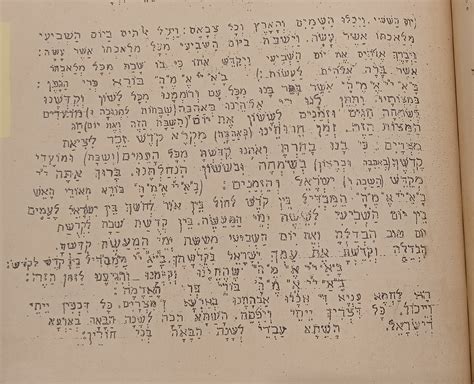 (יום הששי. ויכלו השמים והארץ וכל צבאם: ויכל אלהים ביום השביעי
מלאכתו אשר עשה. וישבת ביום השביעי מכל מלאכתו אשר עשה:
ויברך אלהים את יום השביעי ויקדש אתו כי בו שבת מכל מלאכתו
אשר ברא אלהים לעשות:) בורא פרי הגפן:
אשר בחר בנו מכל עם ורוממנו מכל לשון וקדשנו
במצותיו: ותתן לנו אלהינו באהבה (שבתות למנוחה ו) מועדים
לשמחה חגים וזמנים לששון את יום (השבת הזה ואת יום) חג
המצות הזה. זמן חרותנו (באהבה) מקרא קדש זכר ליציאת
מצרים: כי בנו בחרת ואותנו קדשת מכל העמים (ושבת) ומועדי
קדשך (באהבה וברצון) בשמחה ובששון הנחלתנו. ברוך אתה
מקדש (השבת ו) ישראל והזמנים:
בורא מאורי האש
המבדיל בין קדש לחול בין אור לחשך בין ישראל לעמים
בין יום השביעי לששת ימי המעשה. בין קדשת שבת לקדשת
יום טוב הבדלת ואת יום השביעי מששת ימי המעשה קדשת.
הבדלת וקדשת את עמך ישראל בקדשתך. המבדיל בין קדש לקדש:
שהחינו וקימנו והגיענו לזמן הזה:
האדמה:
הא לחמא עניא די אכלו אבהתנא בארעא דמצרים. כל דכפין ייתי
וייכול. כל דצריך ייתי ויפסח. השתא הכא לשנה הבאה בארעא
דישראל. השתא עבדי לשנה הבאה בני חורין: